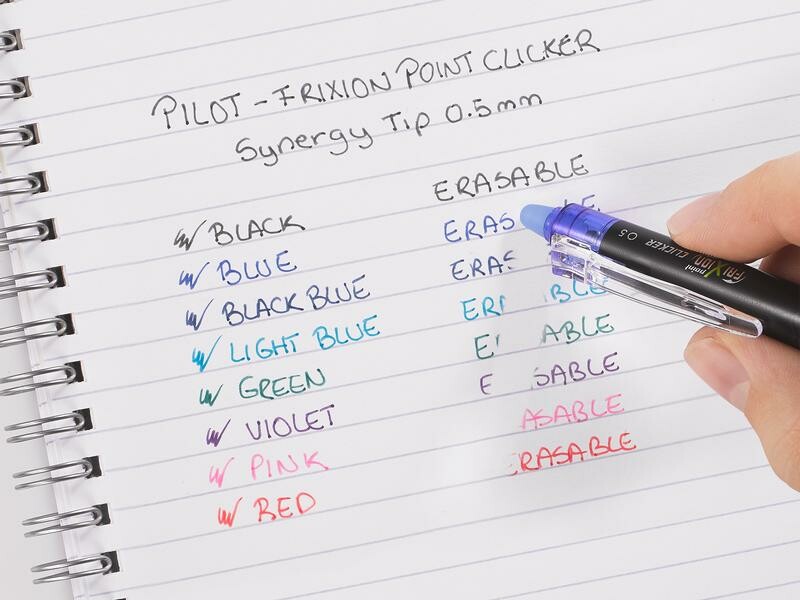 PILOT - FRIXION POINT CLICKER
Synergy Tip 0.5mm
BLACK ERASABLE
BLUE ERAS LE
BLACK BLUE ERAS
LIGHT BLUE ER BLE
GREEN E ABLE
VIOLET E SABLE
PINK ASABLE
RED RASABLE
point FRIXION CLICKER 0.5